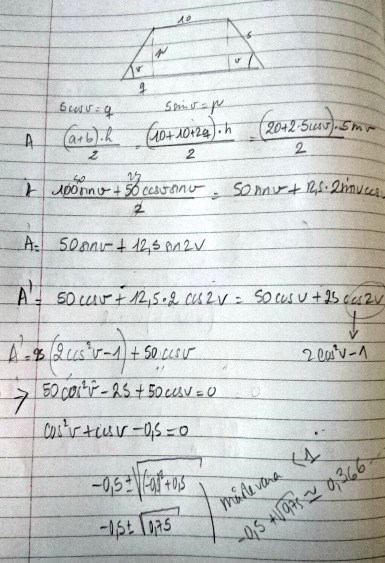 10
p s
v v
q
5cosv = q 5sinv = p
A (a+b)·h / 2 = (10+10+2q)·h / 2 = (20+2·5cosv)·5sinv / 2
100sinv + 50cosvsinv / 2 = 50sinv + 12,5·2sinvcosv
50 25
A = 50sinv + 12,5sin2v
A' = 50cosv + 12,5·2cos2v = 50cosv + 25cos2v
A' = 25(2cos²v-1) + 50cosv 2cos²v-1
50cos²v - 25 + 50cosv = 0
cos²v + cosv - 0,5 = 0
-0,5 ± √(-0,5)²+0,5 måste vara < 1
-0,5 ± √0,75 -0,5+√0,75 ≈ 0,366